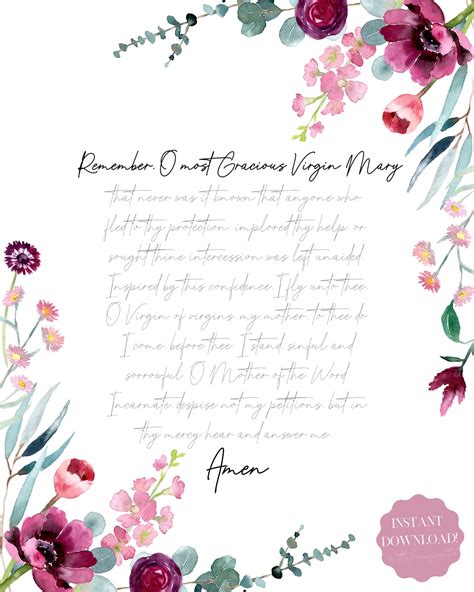 Remember, O most Gracious Virgin Mary
that never was it known that anyone who
fled to thy protection, implored thy help, or
sought thine intercession was left unaided.
Inspired by this confidence, I fly unto thee,
O Virgin of virgins, my mother; to thee do
I come, before thee I stand, sinful and
sorrowful. O Mother of the Word
Incarnate, despise not my petitions, but in
thy mercy hear and answer me.
Amen
INSTANT
DOWNLOAD!